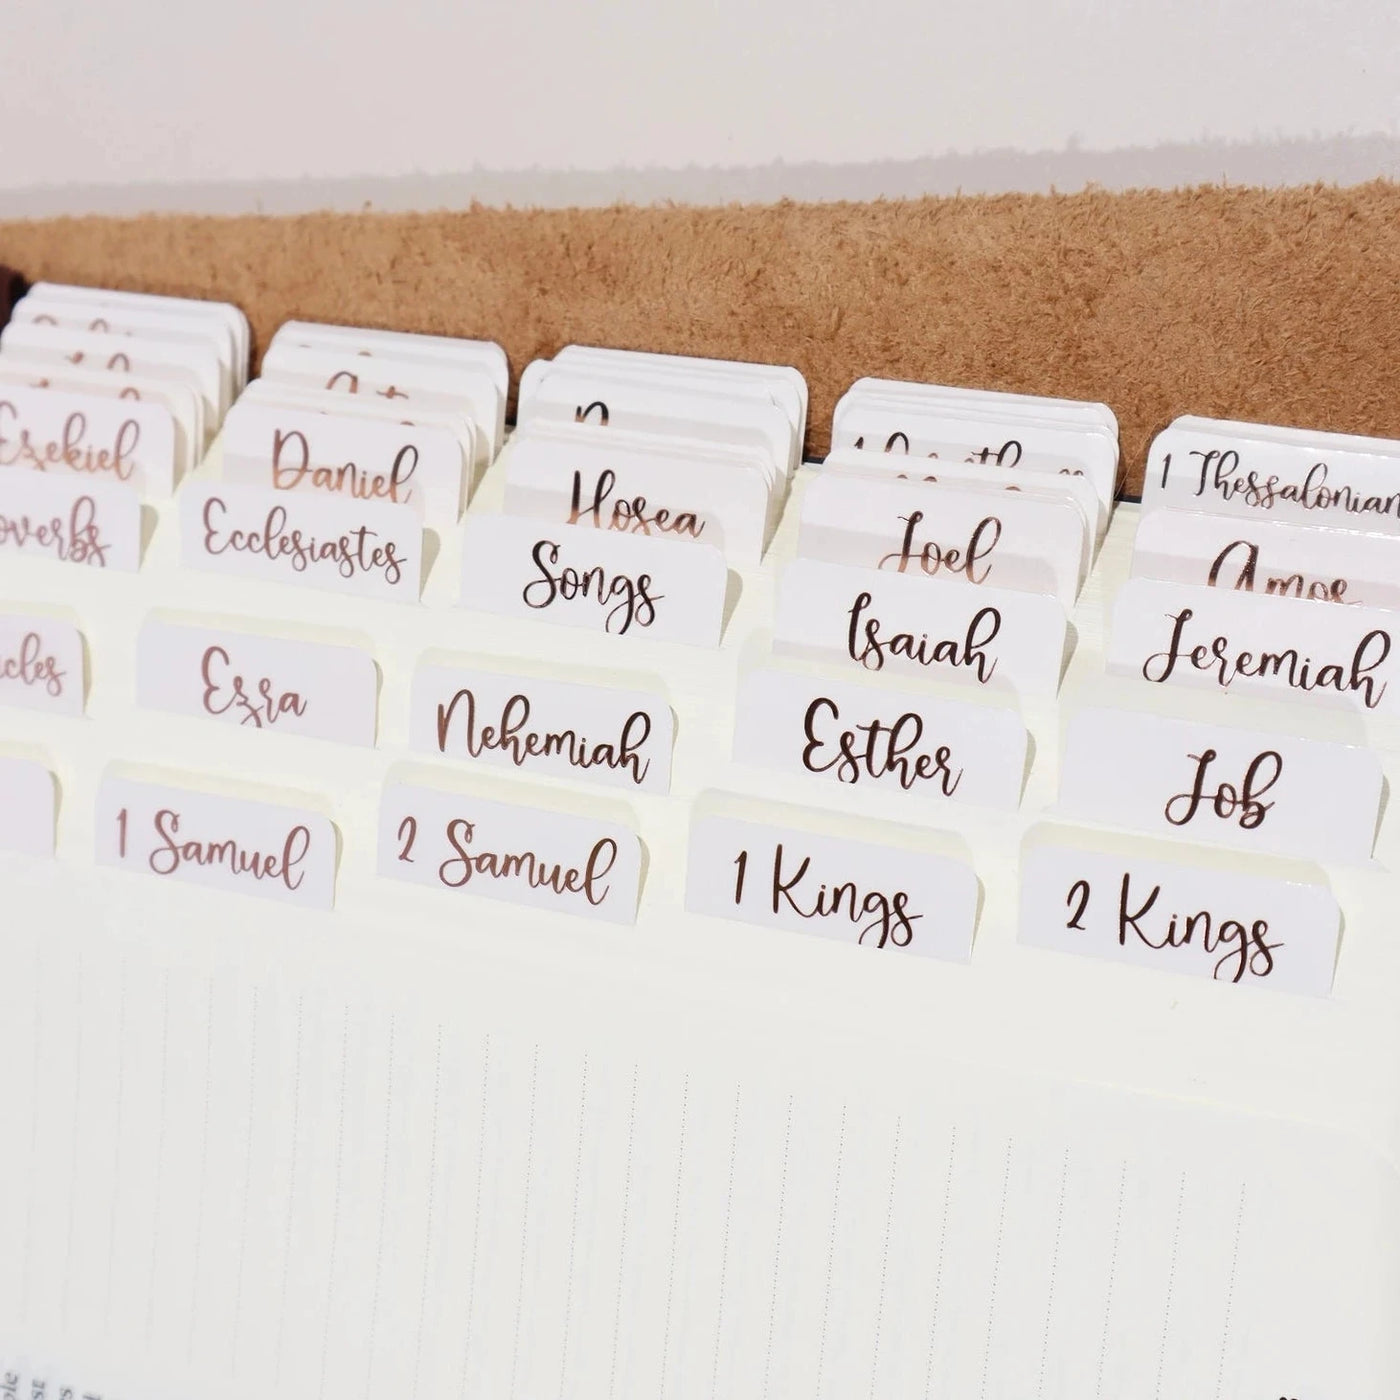 Ezekiel
Daniel
Hosea
Joel
1 Thessalonian
Amos
overbs
Ecclesiastes
Songs
Isaiah
Jeremiah
icles
Ezra
Nehemiah
Esther
Job
1 Samuel
2 Samuel
1 Kings
2 Kings